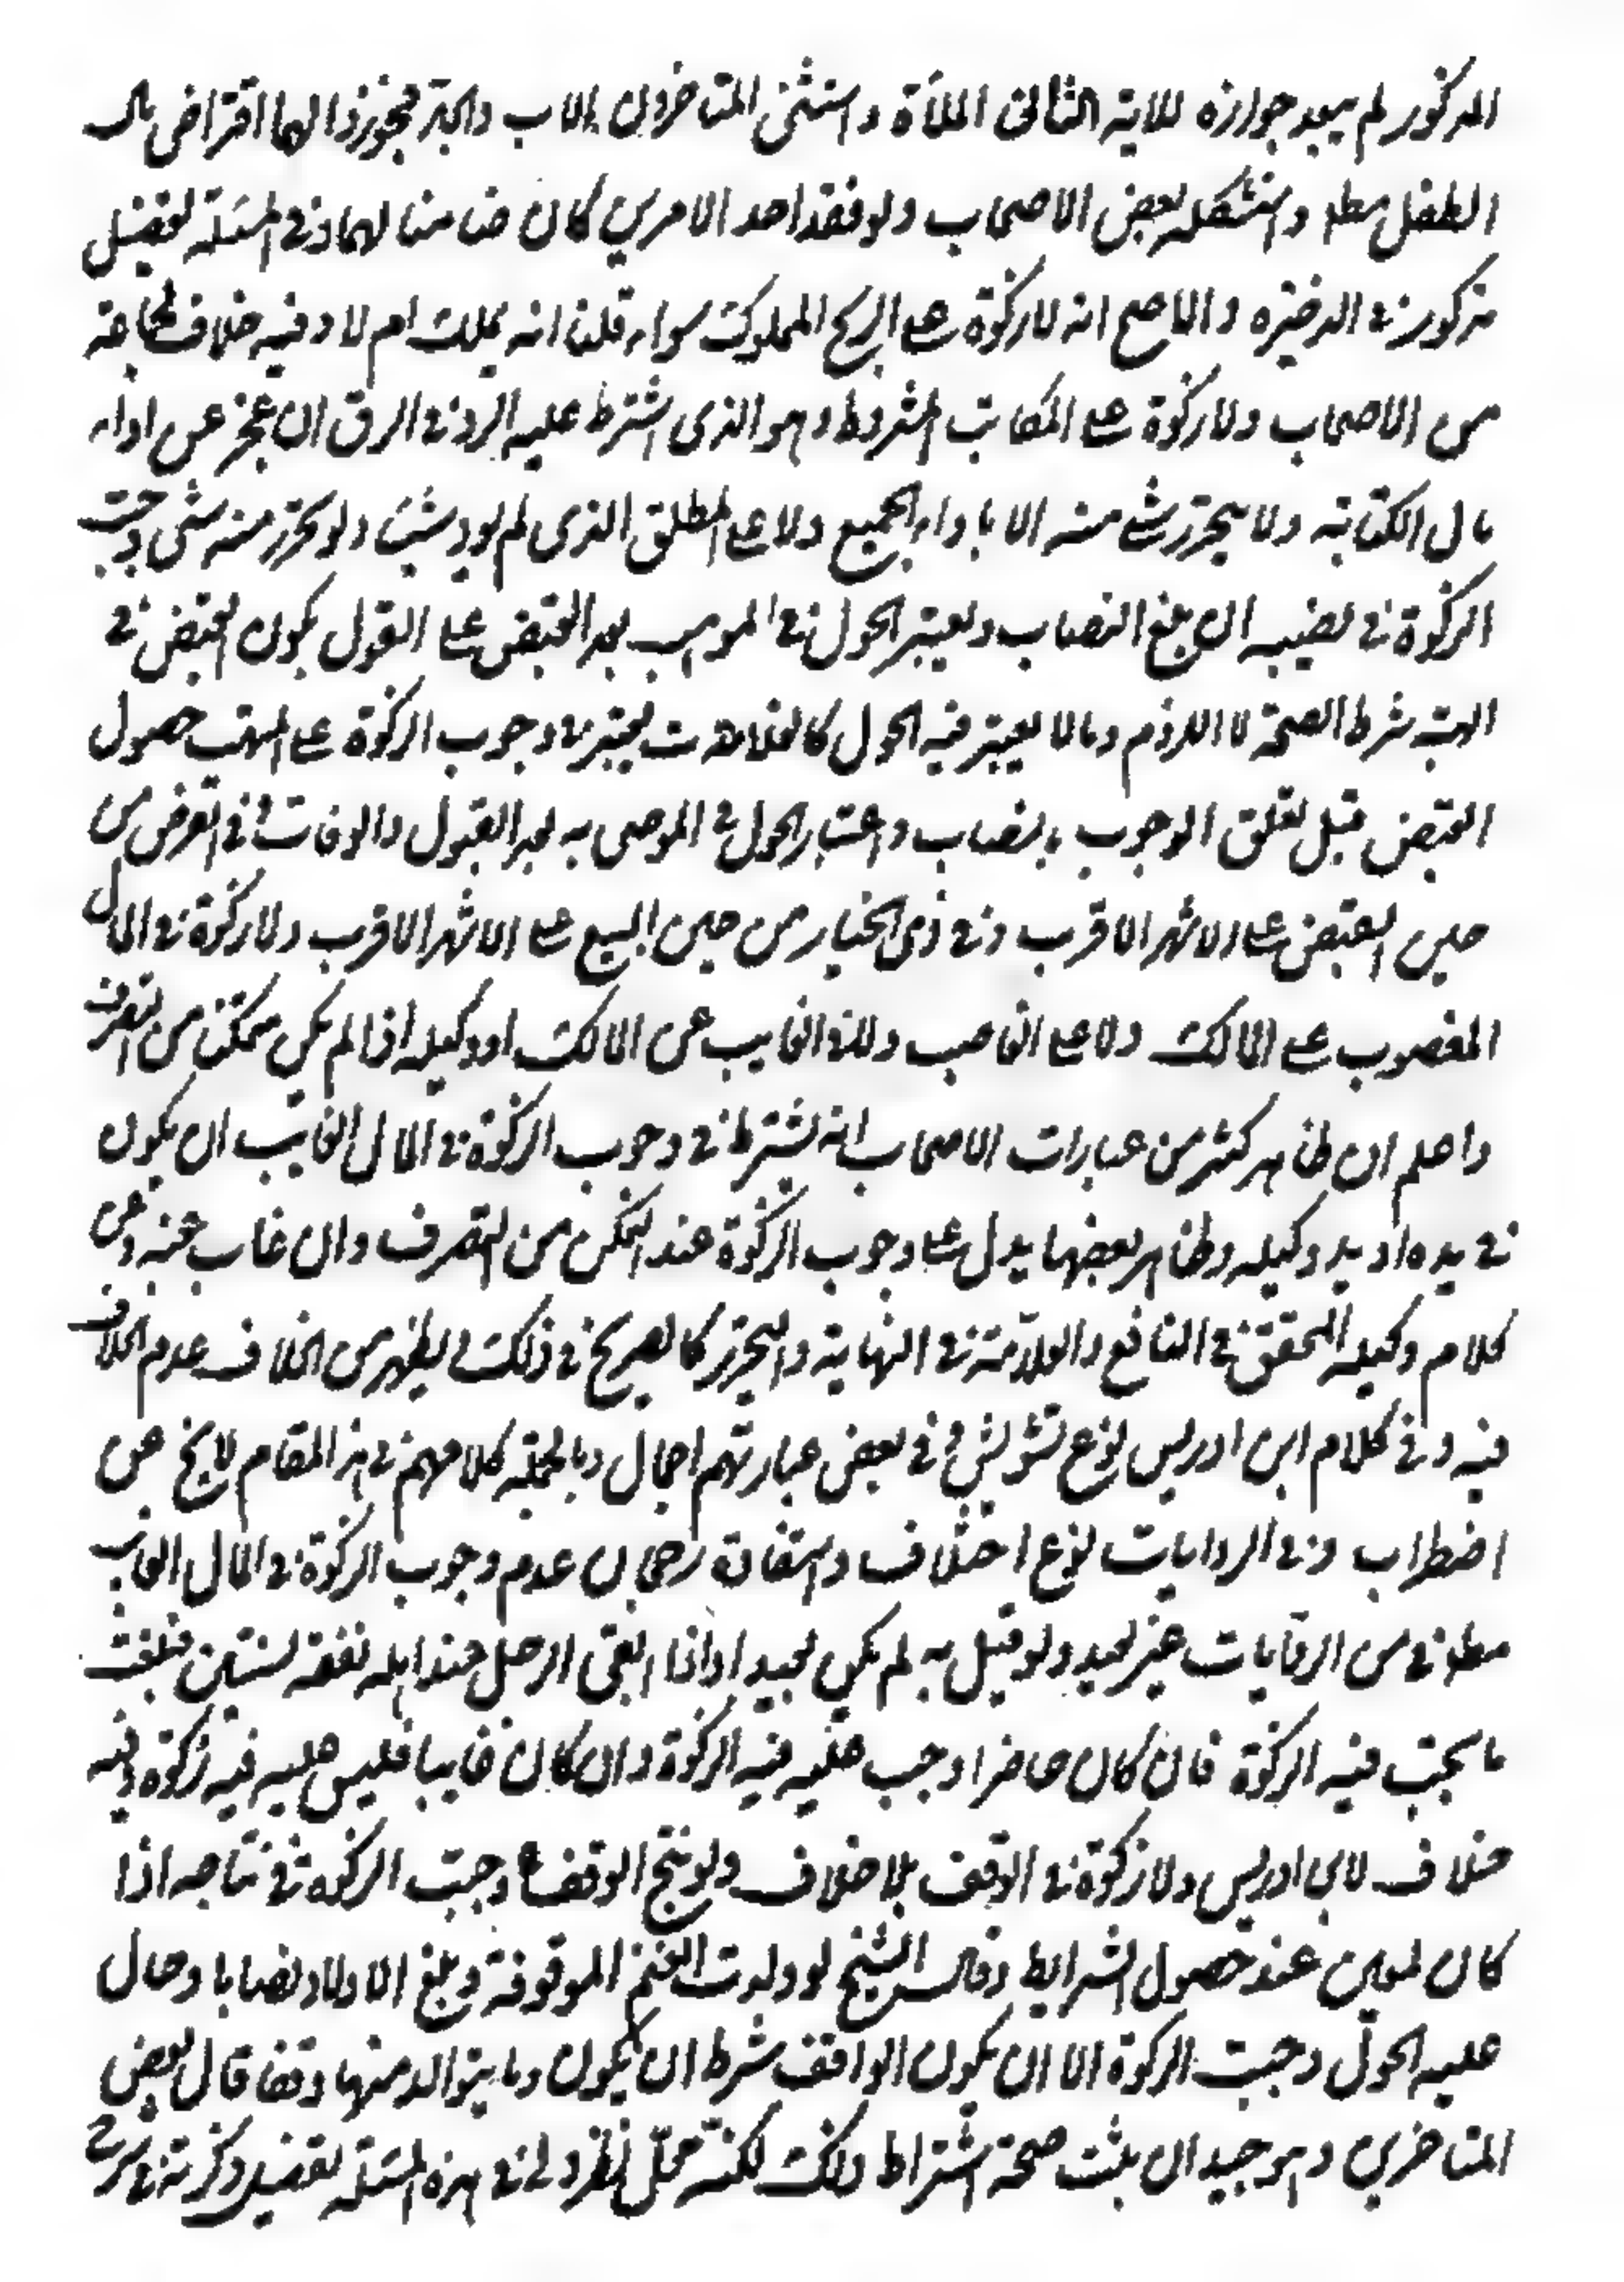 المذكور لم يبعد جوازه للاية الثاني الملأة واستثنى المتاخرون الاب والجد فجوزوا لهما اقتراض مال
الطفل مطلقا واستشكله بعض الاصحاب ولو فقد احد الامرين كان ضامنا لهما وفي المسئلة تفصيل
مذكور في الذخيره والاصح انه لا زكوة على الربح المملوك سواء قلنا انه يملك ام لا وفيه خلاف لجماعة
من الاصحاب ولا زكوة على المكاتب المشروط وهو الذى اشترط عليه الرد في الرق ان عجز عن اداء
مال الكتابة ولا يتحرر شئ منه الا باداء الجميع ولا على المطلق الذى لم يود شيئا ولو تحرر منه شئ وجبت
الزكوة في نصيبه ان بلغ النصاب ويعتبر الحول في الموهب بعد القبض على القول بكون القبض في
الهبة شرط الصحة لا اللزوم وما لا يعتبر فيه الحول كالغلات يعتبر في وجوب الزكوة على المتهب حصول
القبض قبل تعلق الوجوب بالنصاب واعتبار الحول في الموصى به بعد القبول والوفات وفي القرض من
حين القبض على الاشهر الاقرب وفي ذى الخيار من حين البيع على الاشهر الاقرب ولا زكوة في المال
المغصوب على المالك ولا على الغاصب ولا في الغايب عن المالك او وكيله اذا لم يكن متمكنا من التصرف
واعلم ان ظاهر كثير من عبارات الاصحاب انه يشترط في وجوب الزكوة في المال الغايب ان يكون
في يده او يد وكيله وظاهر بعضها يدل على وجوب الزكوة عند التمكن من التصرف وان غاب عنه وعن
كلام وكيله المحقق في النافع والعلامة في النهاية والتحرير كالصريح في ذلك ويظهر من الخلاف عدم الخلاف
فيه وفي كلام ابن ادريس نوع تشويش وفي بعض عبارتهم اجمال وبالجملة كلامهم في هذا المقام لا يخ عن
اضطراب وفي الروايات نوع اختلاف واستفادة رجحان عدم وجوب الزكوة في المال الغايب
مطلقا من الروايات غير بعيد ولو قيل به لم يكن بعيدا واذا ابقى الرجل عند اهله نفقة لسنتين فبلغت
ما يجب فيه الزكوة فان كان حاضرا وجب عليه فيه الزكوة وان كان غايبا فليس عليه فيه زكوة وفيه
خلاف لابن ادريس ولا زكوة في الوقف بلا خلاف ولو نتج الوقف وجبت الزكوة في نتاجه اذا
كان لمعين عند حصول الشرايط وقال الشيخ لو ولدت الغنم الموقوفة وبلغ الاولاد نصابا وحال
عليه الحول وجبت الزكوة الا ان يكون الواقف شرط ان يكون وما يتوالد منها وقفا قال بعض
المتاخرين وهو جيد ان يثبت صحة اشتراط ذلك لكنه محل نظر ولي في هذه المسئلة تفصيل ذكرته في شرح